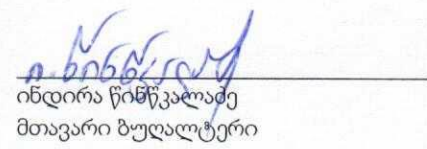 ინდირა წინწკალაძე
მთავარი ბუღალტერი